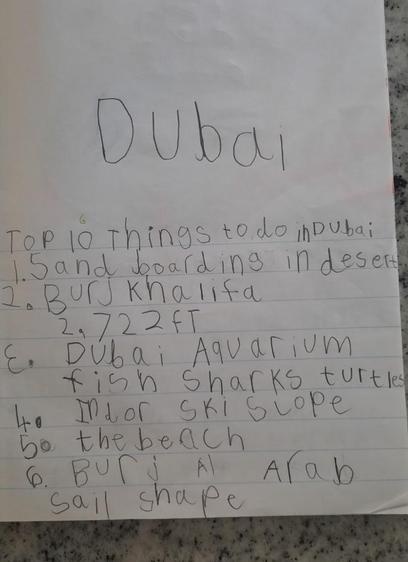 Dubai
6
Top 10 Things to do in Dubai
1. Sand boarding in desert
2. Burj Khalifa
2,722 FT
3. Dubai Aquarium
fish sharks turtles
4. Indor ski slope
5. the beach
6. Burj Al Arab
sail shape